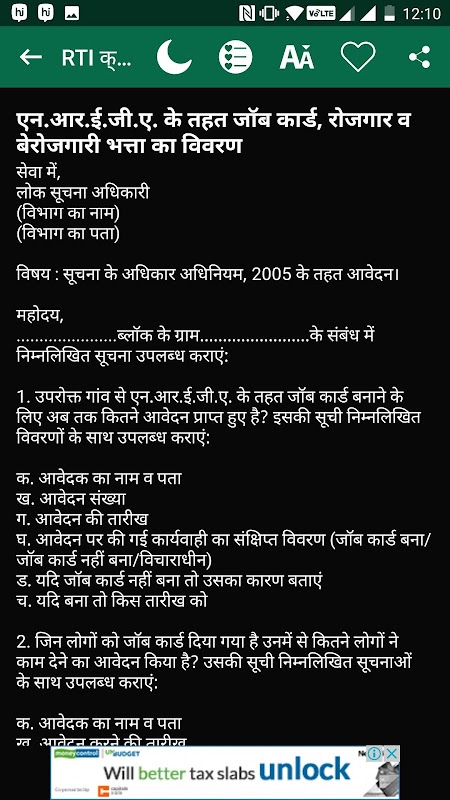 hi hi N VoLTE 12:10
RTI क्...
एन.आर.ई.जी.ए. के तहत जॉब कार्ड, रोजगार व
बेरोजगारी भत्ता का विवरण
सेवा में,
लोक सूचना अधिकारी
(विभाग का नाम)
(विभाग का पता)
विषय : सूचना के अधिकार अधिनियम, 2005 के तहत आवेदन।
महोदय,
......................ब्लॉक के ग्राम........................के संबंध में
निम्नलिखित सूचना उपलब्ध कराएं:
1. उपरोक्त गांव से एन.आर.ई.जी.ए. के तहत जॉब कार्ड बनाने के
लिए अब तक कितने आवेदन प्राप्त हुए है? इसकी सूची निम्नलिखित
विवरणों के साथ उपलब्ध कराएं:
क. आवेदक का नाम व पता
ख. आवेदन संख्या
ग. आवेदन की तारीख
घ. आवेदन पर की गई कार्यवाही का संक्षिप्त विवरण (जॉब कार्ड बना/
जॉब कार्ड नहीं बना/विचाराधीन)
ड. यदि जॉब कार्ड नहीं बना तो उसका कारण बताएं
च. यदि बना तो किस तारीख को
2. जिन लोगों को जॉब कार्ड दिया गया है उनमें से कितने लोगों ने
काम देने का आवेदन किया है? उसकी सूची निम्नलिखित सूचनाओं
के साथ उपलब्ध कराएं:
क. आवेदक का नाम व पता
ख. आवेदन करने की तारीख
moneycontrol
BUDGET
Will better tax slabs unlock